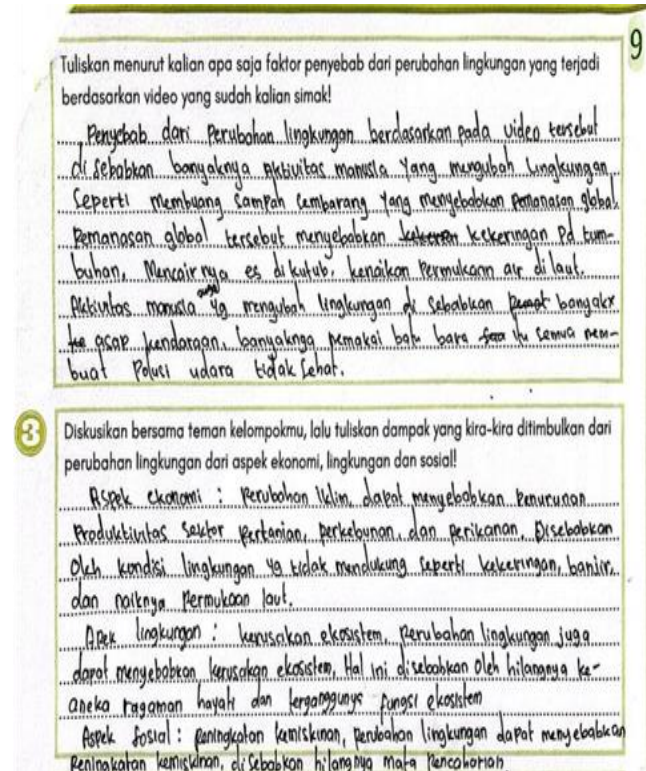 9
Tuliskan menurut kalian apa saja faktor penyebab dari perubahan lingkungan yang terjadi
berdasarkan video yang sudah kalian simak!
Penyebab dari Perubahan lingkungan berdasarkan pada video tersebut
di sebabkan banyaknya Aktivitas manusia yang mengubah lingkungan
Seperti membuang sampah sembarang yang menyebabkan pemanasan global.
Pemanasan global tersebut menyebabkan kekeringan Pd tum-
buhan, Mencair nya es di kutub, kenaikan Permukaan air di laut.
Aktivitas manusia yg mengubah lingkungan di Sebabkan banyakx
asap kendaraan, banyaknya pemakai batu bara itu semua mem-
buat Polusi udara tidak Sehat.
3
Diskusikan bersama teman kelompokmu, lalu tuliskan dampak yang kira-kira ditimbulkan dari
perubahan lingkungan dari aspek ekonomi, lingkungan dan sosial!
Aspek ekonomi : Perubahan iklim dapat menyebabkan Penurunan
Produktivitas sektor Pertanian, perkebunan, dan perikanan, Disebabkan
Oleh kondisi lingkungan yg tidak mendukung seperti kekeringan, banjir,
dan naiknya Permukaan laut.
Apek lingkungan : kerusakan ekosistem, Perubahan lingkungan juga
dapat menyebabkan kerusakan ekosistem, Hal ini disebabkan Oleh hilangnya ke-
aneka ragaman hayati dan terganggunya fungsi ekosistem
Aspek Sosial : Peningkatan kemiskinan, perubahan lingkungan dapat menyebabkan
Peningkatan kemiskinan, di sebabkan hilangnya mata Pencaharian